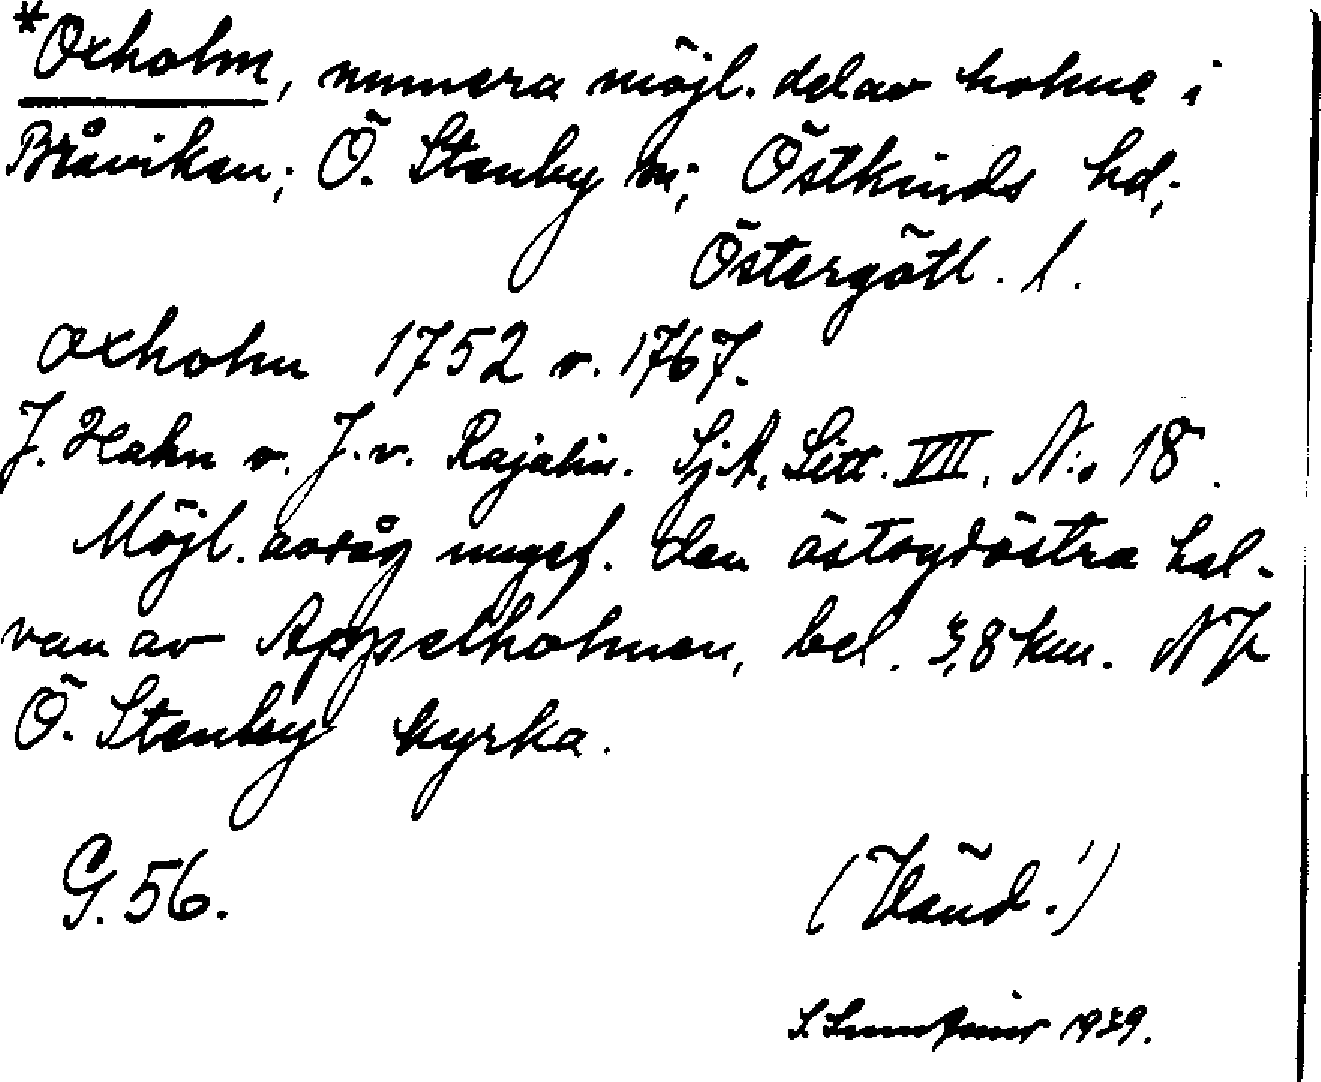 *Oxholm, numera möjl. del av holme i
Bråviken; Ö. Stenby sn; Östkinds hd;
Östergötl. l.
oxholm 1752 o. 1767.
J. Hahn o. J. v. Rajalin. Sj.A. Litt. VII. N:o 18.
Möjl. avsåg ungef. den östsydöstra hal-
van av Äppelholmen, bel. 3,8 km. N
Ö. Stenby kyrka.
G. 56.
(Vänd!)
1939.